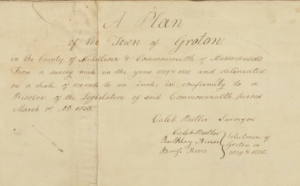 A Plan
of the Town of Groton
in the County of Middlesex & Commonwealth of Massachusetts
From a survey made in the years and delineated
on a scale of to an inch; in conformity to a
of the Legislature of said Commonwealth passed
March 1st
Caleb Butler Surveyor
Caleb Butler
Selectmen of
Groton in